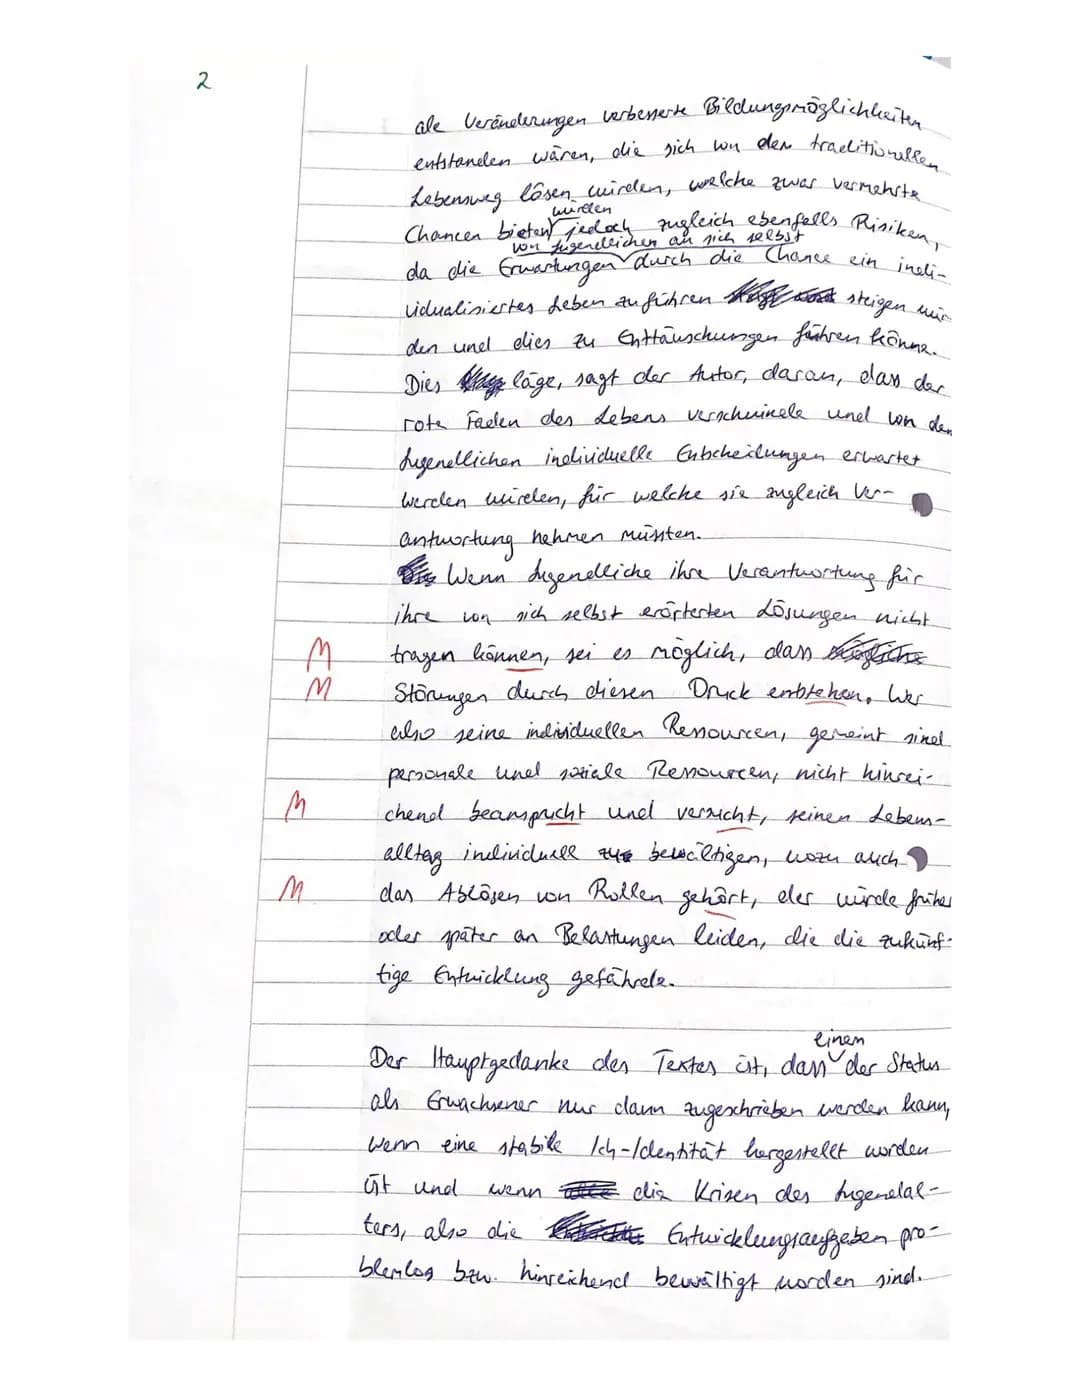 2
ale Veränderungen verbesserte Bildungsmöglichkeiten
entstanden wären, die sich von dem traditionellen
Lebensweg lösen würden, welche zwar vermehrte
würden
Chancen bieten jedoch zugleich ebenfalls Risiken,
von Jugendlichen an sich selbst
da die Erwartungen durch die Chance ein indi-
vidualisiertes Leben zuführen steigen wür
den und dies zu Enttäuschungen führen könne.
Dies läge, sagt der Autor, daran, dass der
rote Faden des Lebens verschwinde und von den
Jugendlichen individuelle Entscheidungen erwartet
werden würden, für welche sie zugleich Ver-
antwortung nehmen müssten.
Wenn Jugendliche ihre Verantwortung für
ihre von sich selbst erörterten Lösungen nicht
M tragen können, sei es möglich, dass
M Störungen durch diesen Druck entstehen. Wer
also seine individuellen Ressourcen, gemeint sind
personale und soziale Ressourcen, nicht hinrei-
M chend beansprucht und versucht, seinen Lebens-
alltag individuell zu bewältigen, wozu auch
M das Ablösen von Rollen gehört, der würde früher
oder später an Belastungen leiden, die die zukünf-
tige Entwicklung gefährde.
einem
Der Hauptgedanke des Textes ist, dass der Status
als Erwachsener nur dann zugeschrieben werden kann,
wenn eine stabile Ich-Identität hergestellt worden
ist und wenn die Krisen des Jugendal-
ters, also die Entwicklungsaufgaben pro-
blemlos bzw. hinreichend bewältigt worden sind.